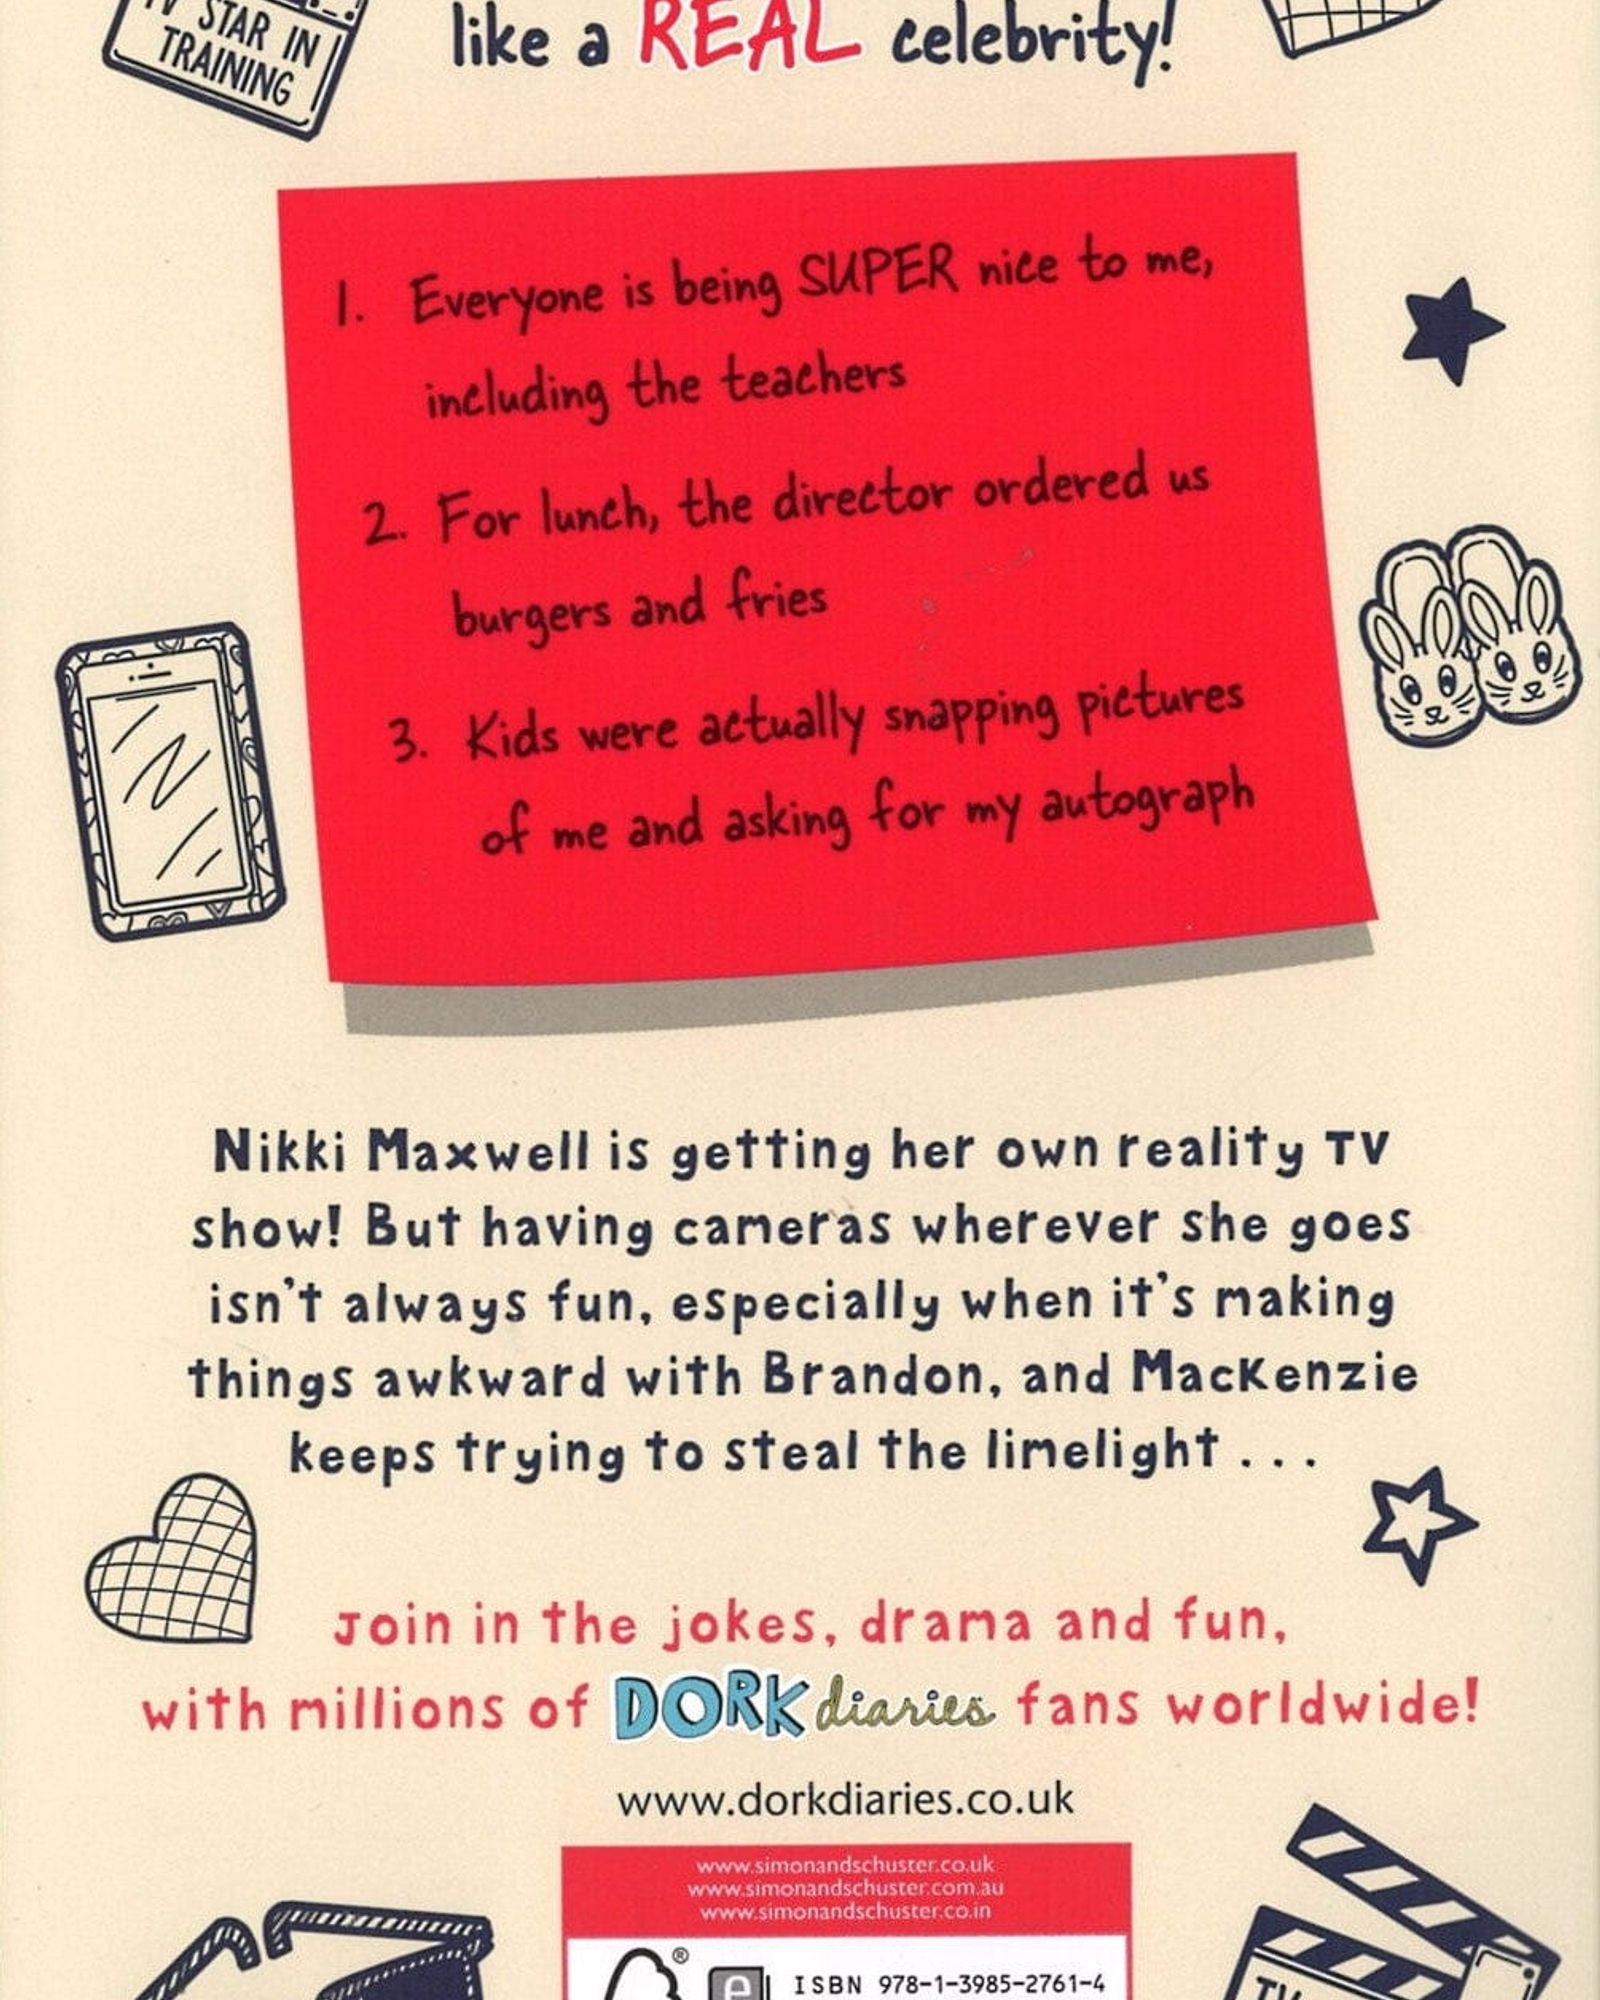 TV STAR IN
TRAINING
like a REAL celebrity!
1. Everyone is being SUPER nice to me,
including the teachers
2. For lunch, the director ordered us
burgers and fries
3. Kids were actually snapping pictures
of me and asking for my autograph
Nikki Maxwell is getting her own reality TV
show! But having cameras wherever she goes
isn't always fun, especially when it's making
things awkward with Brandon, and MacKenzie
keeps trying to steal the limelight . . .
Join in the jokes, drama and fun,
with millions of DORK diaries fans worldwide!
www.dorkdiaries.co.uk
www.simonandschuster.co.uk
www.simonandschuster.com.au
www.simonandschuster.co.in
® e ISBN 978-1-3985-2761-4
TV